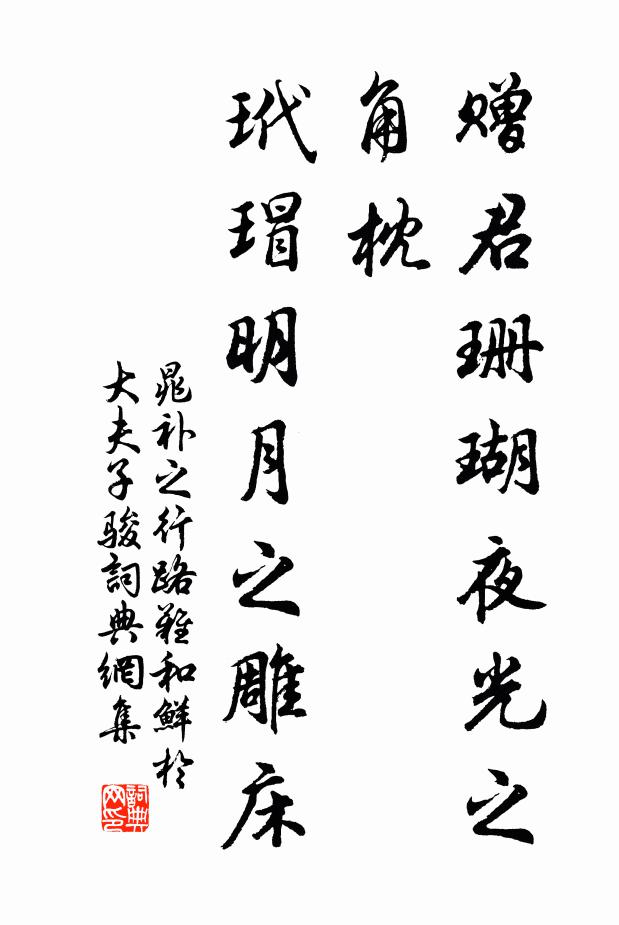 赠君珊瑚夜光之
角枕
玳瑁明月之雕床
晁补之行路难和鲜于
大夫子骏词典網集
詞典网印